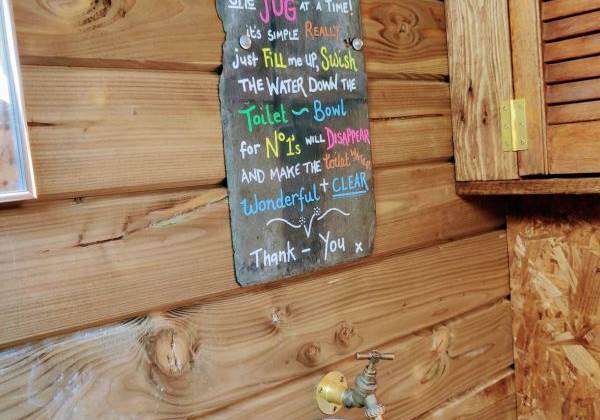 ONE JUG AT A TIME!
it's SIMPLE REALLY
just Fill me UP, Swish
THE WATER DOWN THE
Toilet ~ Bowl
for No1's will DISAPPEAR
AND MAKE THE toilet
Wonderful + CLEAR
Thank - You x